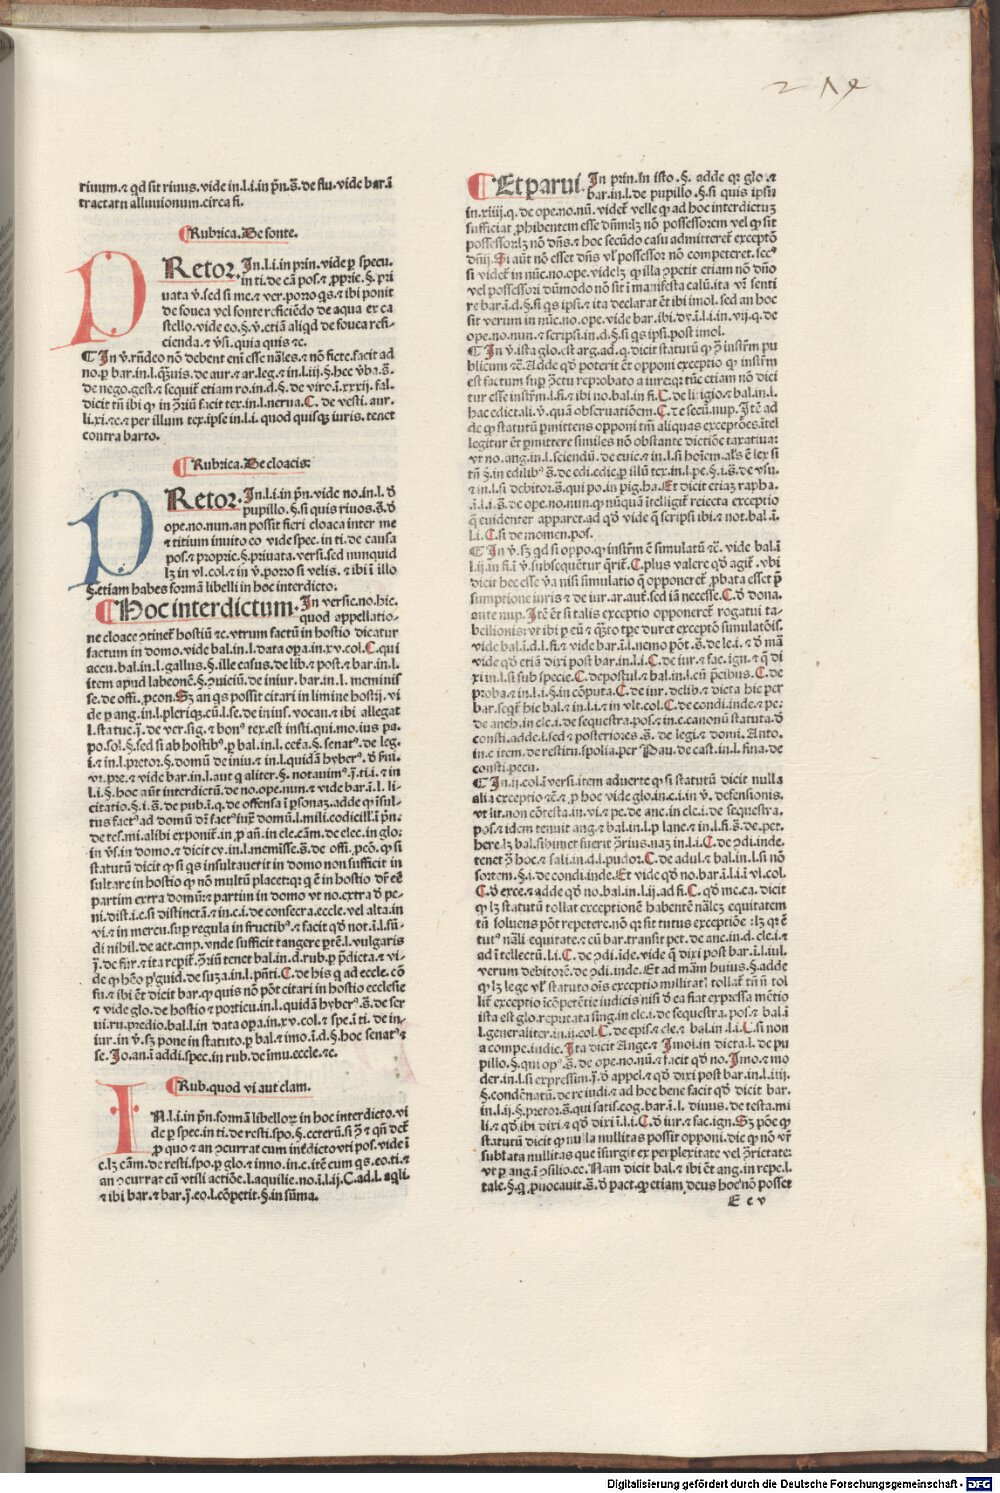 riuum.⁊ qd sit riuus.vide in.l.i.in pn̄.s̄.de flu.vide bar.ī
tractatu alluuionum.circa fi.
Rubrica.De fonte.
PRetor.In.l.i.in prin.vide ꝑ specu.
in ti.de cā pos.⁊ ꝓprie.§.pri
uata v̄.sed si me.⁊ ver.porro qs.⁊ ibi ponit
de fouea vel fonte reficiēdo de aqua ex ca
stello.vide eo.§.v̄.etiā aliqd de fouea refi-
cienda.⁊ v̄si.quia quis ⁊c.
¶In v̄.rn̄deo nō debent eni esse nāles.⁊ nō ficte.facit ad
no.ꝑ bar.in.l.q̄uis.de aur.⁊ ar.leg.⁊ in.l.iij.§.hec v̄ba.s̄.
de nego.gest.⁊ sequit̄ etiam ro.in.d.§.de viro.i.xxxij.fal.
dicit tn̄ ibi ꝙ in ꝯriū facit tex.in.l.nerua.C.de vesti.aur.
li.xi.⁊c.⁊ per illum tex.ipse in.l.i. quod quisqꝫ iuris.tenet
contra barto.
Rubrica.De cloacis:
PRetor.In.l.i.in pn̄.vide no.in.l.d̄
pupillo.§.si quis riuos.s̄.d̄
ope.no.nun.an possit fieri cloaca inter me
⁊ titium inuito eo vide spec.in ti.de causa
pos.⁊ proprie.§.priuata.versi.sed nunquid
lꝫ in vl.col.⁊ in v̄.porro si velis.⁊ ibi ī illo
§.etiam habes formā libelli in hoc interdicto.
¶Hoc interdictum.In versic.no.hic.
quod appellatio-
ne cloace ꝯtinet̄ hostiū ⁊c.vtrum factū in hostio dicatur
factum in domo.vide bal.in.l.data opa.in.xv.col.C.qui
accu.bal.in.l.gallus.§.ille casus.de lib.⁊ post.⁊ bar.in.l.
item apud labeonē.§.ꝯuiciū.de iniur.bar.in.l. meminis
se.de offi.ꝓcon.Sꝫ an qs possit citari in limine hostij.vi
de ꝑ ang.in.l.pleriqꝫ.cū.l.se.de in ius.vocan.⁊ ibi allegat
l.statue.j̄.de ver.sig.⁊ bonꝰ tex.est insti.qui.mo.ius pa.
po.sol.§.sed si ab hostibꝰ.ꝑ bal.in.l.cetēa.§.senatꝰ.de leg.
i.⁊ in.l.pretor.§.domū de iniu.⁊ in.l.quidā hyberꝰ.d̄ s̄ui.
vr.pre.⁊ vide bar.in.l.aut q aliter.§.not auimꝰ.j̄.ti.i.⁊ in
l.i.§.hoc aūt interdictū.de no.ope.nun.⁊ vide bar.ī.l. li-
citatio.§.i.s̄.de pub.ī.q.de offensa ī ꝑsonaꝫ.adde ꝙ īsul-
tus factꝰ ad domū dr̄ factꝰ iux̄ domū.l.mili.codicill.ī pn̄:
de tes.mi.alibi exponit̄.in ꝑ añ.in cle.cām.de elec.in glo:
in v̄s.in domo.⁊ dicit cy.in.l.memisse.s̄.de offi.ꝓcō.ꝙ si
statutū dicit ꝙ si qs insultauerit in domo non sufficit in
sultare in hostio ꝙ nō multū placet:qꝛ q ē in hostio dr̄ eē
partim extra domū:⁊ partim in domo vt no.extra d̄ pe-
ni.dist.i.c.si distinctā.⁊ in.c.i.de consecra.eccle.vel alta.in
vi.⁊ in mercu.suꝑ regula in fructibꝰ.⁊ facit qd̄ not.ī.l.fū-
di nihil.de act.emp.vnde sufficit tangere ꝑtē.l.vulgaris
j̄.de fur.⁊ ita repit̄.ꝯriū tenet bal.in.d.rub.ꝑ p̄dicta.⁊ vi-
de ꝙ hēo ꝑ guid.de suza.in.l.pn̄ti.C.de his q ad eccle.cō
fu.⁊ ibi ēt dicit bar.ꝙ quis nō pōt citari in hostio ecclesie
⁊ vide glo.de hostio ⁊ porticu.in.l.quidā hyberꝰ.s̄.de ser
ui.ru.predio.bal.l.in data opa.in.xv.col.⁊ spe.ī ti. de in-
iur.in v̄.sꝫ pone in statuto.ꝑ bal.⁊ imo.ī.d.§.hoc senatꝰ ⁊
se.Io.an.ī addi.spec.in rub.de īmu.eccle.⁊c.
Rub.quod vi aut clam.
IN.l.i.in pn̄.formā libelloꝝ in hoc interdicto.vi
de ꝑ spec.in ti.de resti.spo.§.ceterū.si ꝯ̄ ⁊ qn̄ det̄
ꝑ quo ⁊ an ꝯcurrat cum inēdicto vti pos.vide ī
c.lꝫ cām.de resti.spo.ꝑ glo.⁊ inno.in c.itē cum qs.eo.ti.⁊
an ꝯcurrat cū vtili actiōe.l.aquilie.no.ī.l.ij.C.ad.l.aqli.
⁊ ibi bar.⁊ bar.j̄.eo.l.cōpetit.§.in sūma.
¶Et parui.In prin.In isto.§. adde qꝛ glo.⁊
bar.in.l.de pupillo.§.si quis ipsi
in.xiiij.q.de ope.no.nū.videt̄ velle ꝙ ad hoc interdictuꝫ
sufficiat ꝓhibentem esse dn̄m:lꝫ nō possessorem vel ꝙ sit
possessor:lꝫ nō dn̄s.⁊ hoc secūdo casu admitteret̄ exceptō
dn̄ij.Si aūt nō esset dn̄s vl̓ possessor nō competeret.secꝰ
si videt̄ in nūc.no.ope.videlꝫ ꝙ illa ꝯpetit etiam nō dn̄o
vel possessori dūmodo nō sit ī manifesta calū.ita vr̄ senti
re bar.ī.d.§.si qs ipsi.⁊ ita declarat ēt ibi imol.sed an hoc
sit verum in nūc.no.ope.vide bar.ibi.dy.ī.l.i.in.vij.q.de
ope.no.nun.⁊ scripsi.in.d.§.si qs ipsi.post imol.
¶In v̄.ista glo.est arg.ad.q.dicit statutū ꝙ ꝯ̄ instr̄m pu
blicum ⁊c̄.Adde qd̄ poterit ēt opponi exceptio ꝙ instr̄m
est factum suꝑ ꝯctu reprobato a iure:qꝛ tūc etiam nō dici
tur esse instr̄m.l.fi.⁊ ibi no.bal.in fi.C.de litigio.⁊ bal.in.l.
hac edictali.v̄.quā obseruationem.C.de secū.nup.Itē ad
de ꝙ statutū ꝑmittens opponi tm̄ aliquas exceptōes.ītel
legitur ēt ꝑmittere similes nō obstante dictiōe taxatiua:
vt no.ang.in.l.sciendū.de euic.⁊ in.l.si hoīem.als ē lex si
tn̄ §.in edilibꝰ s̄.de edi.edic.ꝑ illū tex.in.l.pe.§.i.s̄.de vsu.
⁊ in.l.si debitor.s̄.qui po.in pig.ha.Et dicit etiaꝫ rapha.
ī.l.i.s̄.de ope.no.nun.ꝙ nūquā ītelligit̄ reiecta exceptio
q̄ euidenter apparet.ad qd̄ vide q̄ scripsi ibi.⁊ not.bal.ī.
l.i.C.si de momen.pos.
¶In v̄.sꝫ qd si oppo.ꝙ instr̄m ē simulatū ⁊c̄. vide bal.ī
l.ij.in fi.ī v̄.subsequētur q̄rit̄.C.plus valere qd̄ agit̄.vbi
dicit hec esse v̄a nisi simulatio q̄ opponeret̄ ꝓbata esset p̄
sumptione iuris ⁊ de iur.ar.aut̄.sed iā necesse.C.d̄ dona.
ante nup.Itē ēt si talis exceptio opponeret̄ rogatui ta-
bellionis:vt ibi ꝑ eū ⁊ q̄to tꝑe duret exceptō simulatōis.
vide bal.ī.d.l.fi.⁊ vide bar.ī.l.nemo pōt.s̄.de le.i.⁊ d̄ mā
vide qd̄ etiā dixi post bar.in.l.i.C.de iur.⁊ fac.ign.⁊ q̄ di
xi in.l.si sub specie.C.de postul.⁊ bal.in.l.cū p̄cibus.C.de
proba.⁊ in.l.i.§.in cōputa.C.de iur.delib.⁊ dicta hic per
bar.seqt̄ hic bal.⁊ in.l.i.⁊ in vlt.col.C.de condi.inde.⁊ pe:
de anch.in cle.i.de sequestra.pos.⁊ in.c.canonū statuta.d̄
consti.adde.l.sed ⁊ posteriores s̄. de legi.⁊ domi. Anto.
in.c.item.de restitu.spolia.per Pau.de cast.in.l.fina.de
consti.pecu.
¶In.ij.col.ī versi.item aduerte ꝙ si statutū dicit nulla
alia exceptio ⁊c̄.⁊ ꝓ hoc vide glo.in.c.i.in v̄. defensionis.
vt lit.non cōtesta.in.vi.⁊ pe.de anc.in cle.i.de sequestra.
pos.⁊ idem tenuit ang.⁊ bal.in.l.ꝑ lanc.⁊ in.l.fi.s̄.de pet.
here.lꝫ bal.sibimet fuerit ꝯrius.naꝫ in.l.i.C.de ꝯdi.inde.
tenet ꝯ̄ hoc.⁊ sali.in.d.l.pudor.C.de adul.⁊ bal.in.l.si nō
sortem.§.i.de condi.inde.Et vide qd̄ no.bar.ī.l.i.ī vl.col.
C.d̄ exce.⁊ adde qd̄ no.bal.in.l.ij.ad fi.C.qd̄ me.ca.dicit
ꝙ lꝫ statutū tollat exceptionē habentē nāleꝫ equitatem
tn̄ soluens pōt repetere.nō qꝛ sit tutus exceptiōe:lꝫ qꝛ ē
tutꝰ nāli equitate.⁊ cū bar.transit pet.de anc.in.d.cle.i.⁊
ad ītellectū.l.i.C.de ꝯdi.ide.vide q̄ dixi post bar.ī.l.iul.
verum debitorē.de ꝯdi.inde.Et ad mām huius.§.adde
ꝙ lꝫ lege vl̓ statuto oīs exceptio nullitatī tollat̄ tn̄ nō tol
lit̄ exceptio icōpetētie iudicis nisi d̄ ea fiat expressa mētio
ista est glo.reputata sing.in cle.i.de sequestra.pos.⁊ bal.ī
l.generaliter.in.ij.col.C.de epis.⁊ cle.⁊ bal.in.l.i.C.si non
a compe.iudic.Ita dicit Ange.⁊ Imol.in dicta.l.de pu
pillo.§.qui opꝰ.s̄.de ope.no.nū.⁊ facit qd̄ no.Imo.⁊ mo
der.in.l.si expressim.j̄.d̄ appel.⁊ qd̄ dixi post bar.in.l.iiij.
§.condēnatū.de re iudi.⁊ ad hoc bene facit qd̄ dicit bar.
in.l.ij.§.pretor.s̄.qui satis.cog.bar.ī.l. diuus.de testa.mi
li.⁊ qd̄ ibi dixi ⁊ qd̄ dixi ī.l.i.C.d̄ iur.⁊ fac.ign.Sꝫ pōe ꝙ
statutū dicit ꝙ nulla nullitas possit opponi.dic ꝙ nō vr̄
sublata nullitas que īsurgit ex perplexitate vel ꝯrietate:
vt ꝑ ang.ī ꝯsilio.cc.Nam dicit bal.⁊ ibi ēt ang.in repe.l.
tale.§.q̄ ꝓuocauit.s̄.d̄ pact.ꝙ etiam deus hoc nō posset
E e v
Digitalisierung gefördert durch die Deutsche Forschungsgemeinschaft - DFG